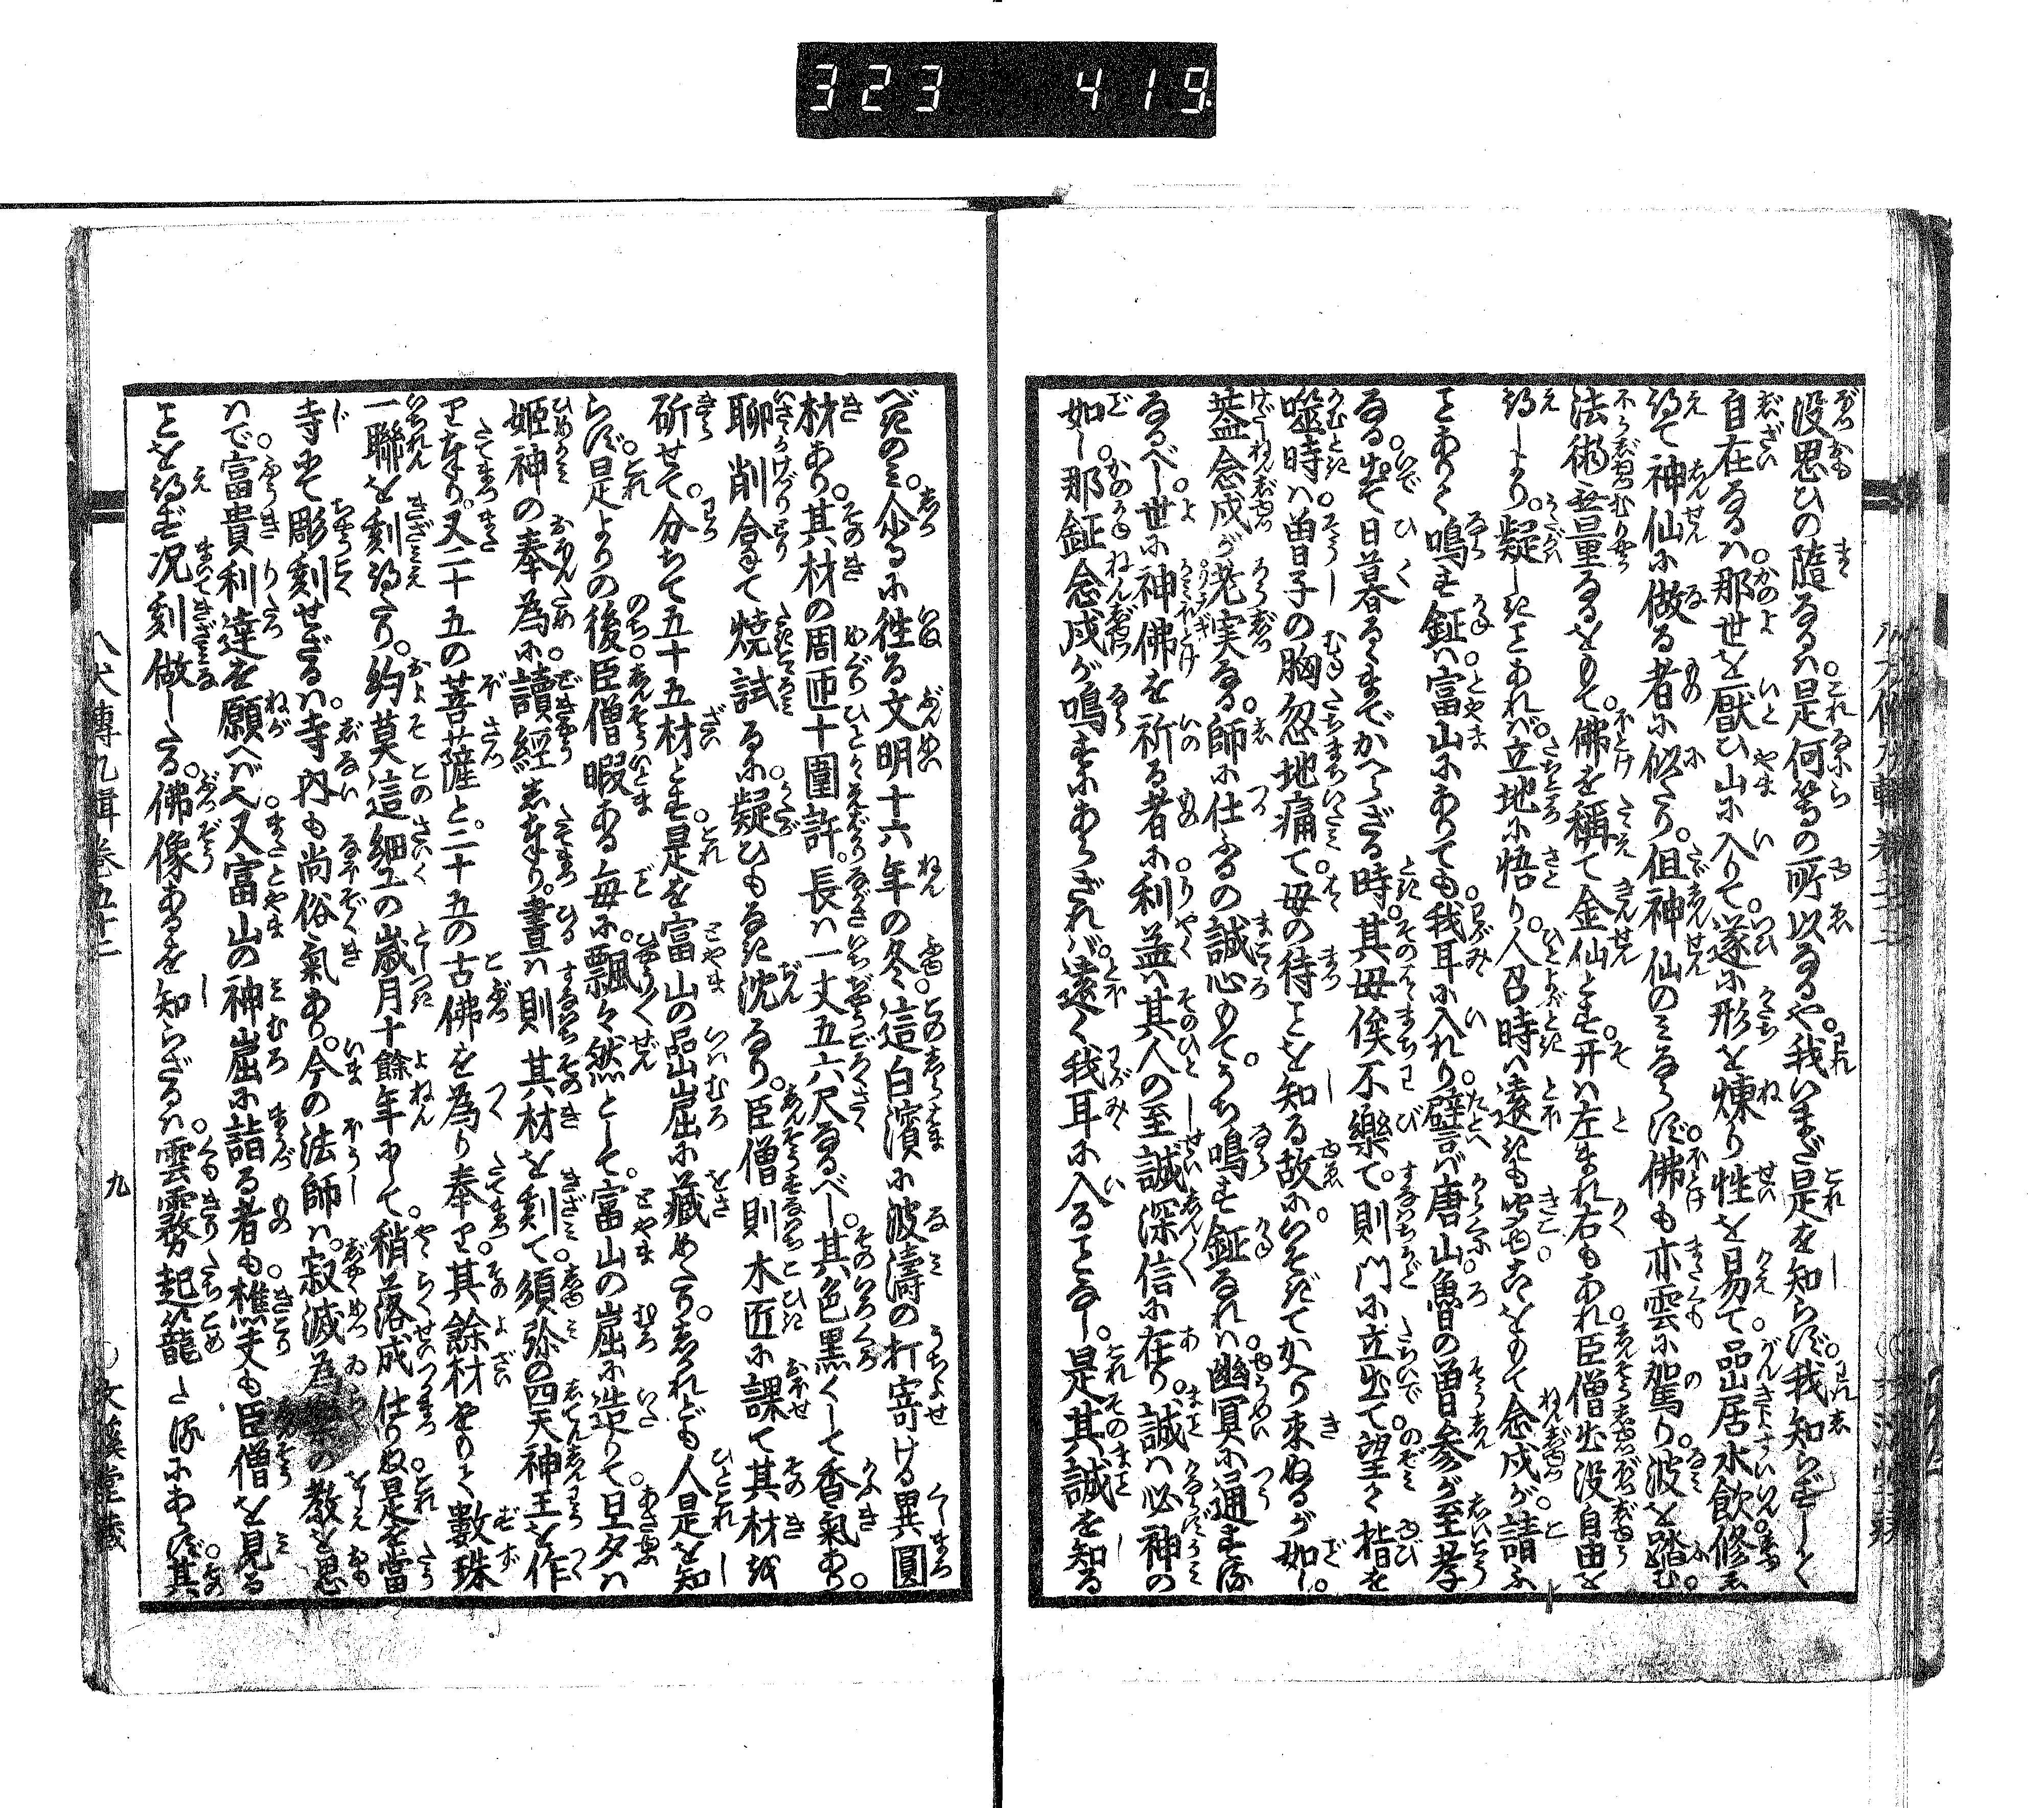 323 419
没思ひの隨なるは是何等の所以なるや。我いまだ是を知らず。我知らずしく
自在なるは那世を厭ひ山に入りて。遂に形を煉り性を易て。嵓居水飲修
得て神仙に做る者に似たり。但神仙のみならず。佛も亦雲に駕り。波を踏む。
法術無量なるをもて。佛を稱て金仙とす。开は左まれ右もあれ臣僧出没自由を
得しより。疑しきことあれば。立地に悟り。人召時は遠きも
念戌が請ふ
ことありく鳴す鉦は。富山にありても。我耳に入れり。譬ば唐山魯の曽參が至孝
なる。出て日暮るゝまでかへらざる時。其母俟不樂て。則門に立出て。望く指を
噬時は。曽子の胸忽地痛て。母の待ことを知る故に。いそぎてかへり来ぬるが如し。
蓋念戌が老実なる。師に仕ふるの誠心もて。うち鳴す鉦なれば。幽冥に通ずる
なるべし。世に神佛を祈る者に。利益は其人の至誠深信に在り。誠は必神の
如し。那鉦念戌が鳴すにあらざれば。遠く我耳に入ることなし。是其誠を知る
べきのみ。尓るに徃る文明十六年の冬。這白濱に波濤の打寄ける異圓
材あり。其材の周匝十圍許。長は一丈五六尺なるべし。其色黒くして香氣あり。
聊削合して燒試るに。疑ひもなき沈なり。臣僧則木匠に課て其材を
斫せて。分ちて五十五材とす。是を富山の嵓崫に藏めたり。されども人是を知
らず。是よりの後。臣僧暇ある毎に。飄々然として。富山の崫に造りて。旦夕は
姫神の奉為に。讀經しまつり。晝は則其材を刻て。須弥の四天神王を作
りまつり。又二十五の菩薩と。二十五の古佛を為り奉り。其餘材をもて數珠
一聯を刻得たり。約莫這細工の歳月十餘年にして。稍落成仕りぬ。是を當
寺にて彫刻せざるは。寺内も尚俗氣あり。今の法師は。寂滅為樂の教を思
はで。富貴利達を願へば也。又富山の神崫に詣る者も。樵夫も臣僧を見る
ことを得ず。况刻做したる。佛像あるを知らざるは。雲霧起籠たる故にあらず。其
八犬傳九輯卷五十二
九
文溪堂藏